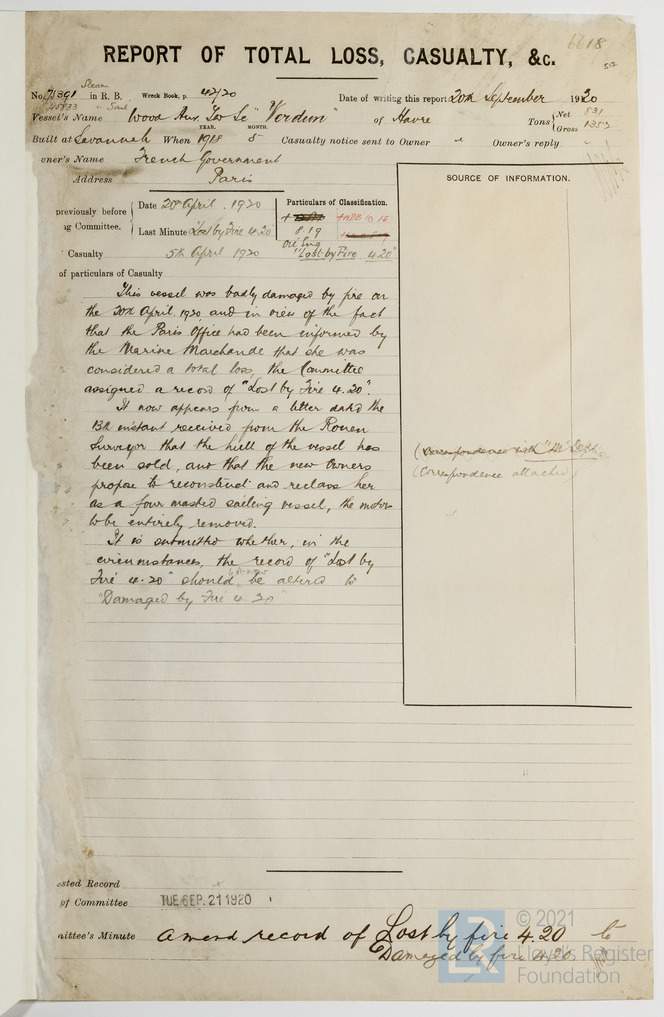 6618
512
REPORT OF TOTAL LOSS, CASUALTY, &c.
Steam
No. 75391 in R. B. Wreck Book, p. 42/20 Date of writing this report 20th September 1920
45733 " Sail
Vessel's Name Wood Aux. Sc "Verdun" of Havre Tons { Net 831
Gross 1353
Built at Savannah When 1918 5 Casualty notice sent to Owner " Owner's reply "
YEAR. MONTH.
wner's Name French Government
Address Paris
SOURCE OF INFORMATION.
previously before
ng Committee.
Date 20th April. 1920
Last Minute Lost by Fire 4.20
Particulars of Classification.
8.19
Oil Eng
"Lost by Fire 4.20"
Casualty 5th April 1920
of particulars of Casualty
This vessel was badly damaged by fire on
the 20th April. 1920, and in view of the fact
that the Paris Office had been informed by
the Marine Marchande that she was
considered a total loss, the Committee
assigned a record of "Lost by Fire 4.20".
It now appears from a letter dated the
13th instant received from the Rouen
Surveyor that the hull of the vessel has
been sold, and that the new Owners
propose to reconstruct and reclass her
as a four masted sailing vessel, the motor
to be entirely removed.
It is submitted whether, in the
circumstances, the record of "Lost by
Fire 4.20" should be altered to
"Damaged by Fire 4.20"
(Correspondence attached)
ested Record
of Committee TUE. SEP. 21 1920
mittee's Minute Amend record of Lost by fire 4.20 to
Damaged by fire 4.20
LR
© 2021
Lloyd's Register
Foundation